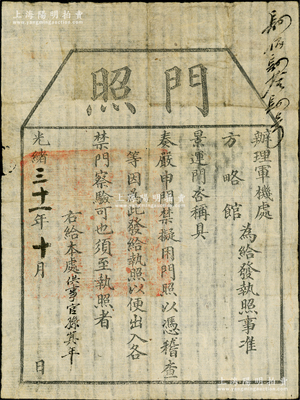 上海陽明拍賣
門照
辦理軍機處
方略館 為給發執照事准
景運門咨稱具
奏嚴申門禁擬用門照以憑稽查
等因為此發給執照以便出入各
禁門察驗可也須至執照者
右給本處供事官孫其年
光緒三十一年十月 日
上海陽明拍賣